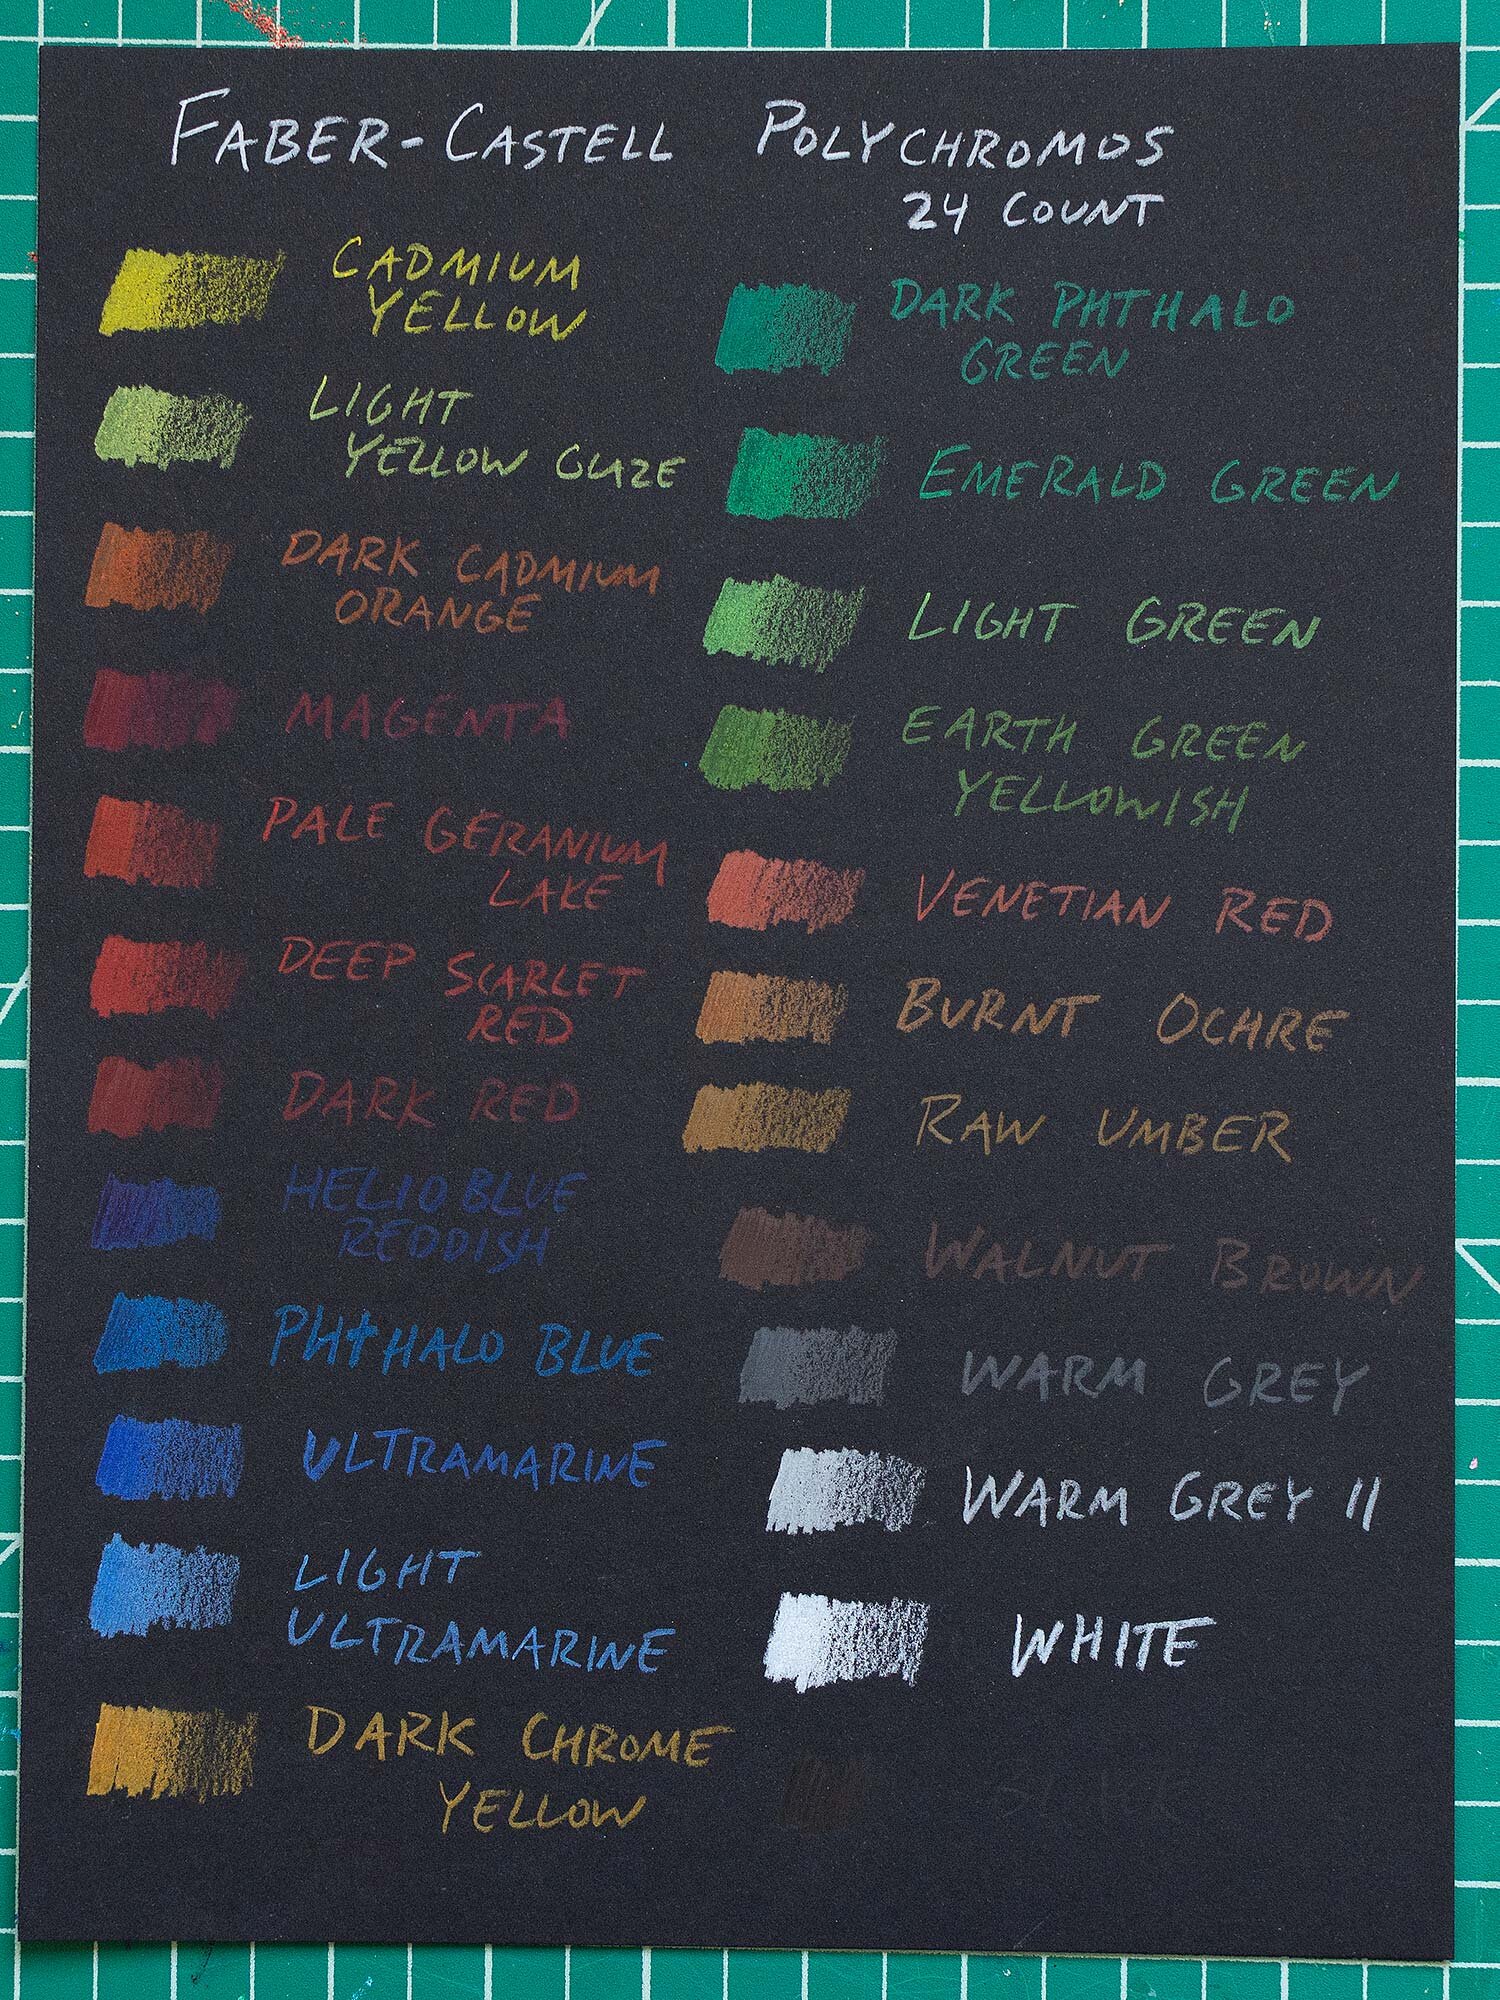 FABER-CASTELL POLYCHROMOS
24 COUNT
CADMIUM
YELLOW
LIGHT
YELLOW GLAZE
DARK CADMIUM
ORANGE
MAGENTA
PALE GERANIUM
LAKE
DEEP SCARLET
RED
DARK RED
HELIO BLUE
REDDISH
PHTHALO BLUE
ULTRAMARINE
LIGHT
ULTRAMARINE
DARK CHROME
YELLOW
DARK PHTHALO
GREEN
EMERALD GREEN
LIGHT GREEN
EARTH GREEN
YELLOWISH
VENETIAN RED
BURNT OCHRE
RAW UMBER
WALNUT BROWN
WARM GREY
WARM GREY II
WHITE